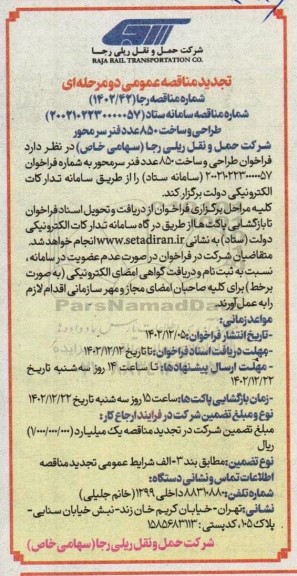 شرکت حمل و نقل ریلی رجا
RAJA RAIL TRANSPORTATION CO.
تجدید مناقصه عمومی دو مرحله ای
شماره مناقصه رجا (۱۴۰۲/۴۲)
شماره مناقصه سامانه ستاد (۲۰۰۲۱۰۲۲۳۰۰۰۰۰۵۷)
طراحی و ساخت ۸۵۰ عدد فنر سر محور
شرکت حمل و نقل ریلی رجا (سهامی خاص) در نظر دارد
فراخوان طراحی و ساخت ۸۵۰ عدد فنر سر محور به شماره فراخوان
۲۰۰۲۱۰۲۲۳۰۰۰۰۰۵۷ (سامانه ستاد) را از طریق سامانه تدارکات
الکترونیکی دولت برگزار کند.
کلیه مراحل برگزاری فراخوان از دریافت و تحویل اسناد فراخوان
تا بازگشایی پاکت ها از طریق درگاه سامانه تدارکات الکترونیکی
دولت (ستاد) به نشانی www.setadiran.ir انجام خواهد شد.
متقاضیان شرکت در فراخوان در صورت عدم عضویت در سامانه،
نسبت به ثبت نام و دریافت گواهی امضای الکترونیکی (به صورت
برخط) برای کلیه صاحبان امضای مجاز و مهر سازمانی اقدام لازم
را به عمل آورند.
مواعد زمانی:
-تاریخ انتشار فراخوان: ۱۴۰۲/۱۲/۰۵
-مهلت دریافت اسناد فراخوان: تا تاریخ ۱۴۰۲/۱۲/۱۲
- مهلت ارسال پیشنهادها: تا ساعت ۱۴ روز سه شنبه تاریخ
۱۴۰۲/۱۲/۲۲
-زمان بازگشایی پاکت ها: ساعت ۱۵ روز سه شنبه تاریخ ۱۴۰۲/۱۲/۲۲
نوع و مبلغ تضمین شرکت در فرایند ارجاع کار:
مبلغ تضمین شرکت در تجدید مناقصه یک میلیارد (۱/۰۰۰/۰۰۰/۰۰۰)
ریال
نوع تضمین: مطابق بند ۳-الف شرایط عمومی تجدید مناقصه
اطلاعات تماس و نشانی دستگاه:
شماره تلفن: ۸۸۳۱۰۸۸۰ داخلی ۱۲۹۹ (خانم جلیلی)
نشانی: تهران-خیابان کریم خان زند-نبش خیابان سنایی-
پلاک ۱۰۵، کدپستی: ۱۵۸۵۶۸۳۱۱۳
شرکت حمل و نقل ریلی رجا (سهامی خاص)